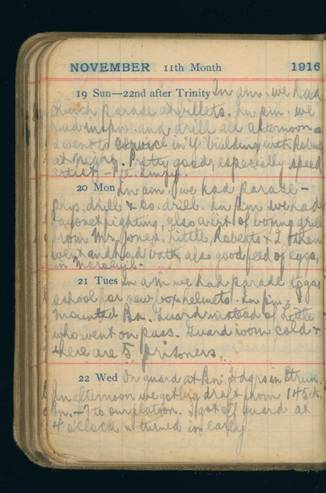 NOVEMBER 11TH MONTH 1916
19 Sun—22nd after Trinity In am. we had
church parade at billets. In p.m. we
had and drill all afternoon.
I went to service in Y building with
at night. Pretty good, especially
artist – Pte.
20 Mon In am. we had parade –
Phys. drill & Co. drill. In p.m. we had
bayonet fighting, also a bit of boxing drill
from Mr. Jones. Little, Roberts & 2 others
went and had bath also good feed of eggs,
in
21 Tues In a.m. we had parade to gas
school for new box helmets. In p.m. I
mounted Bn. Guard instead of Little
who went on pass. Guard room cold &
there are 5 prisoners.
22 Wed On guard at Bn. Hdqrs in
In afternoon we got big draft from 145th
Bn. – 7 to our platoon. I got off guard at
4 o'clock & turned in early.